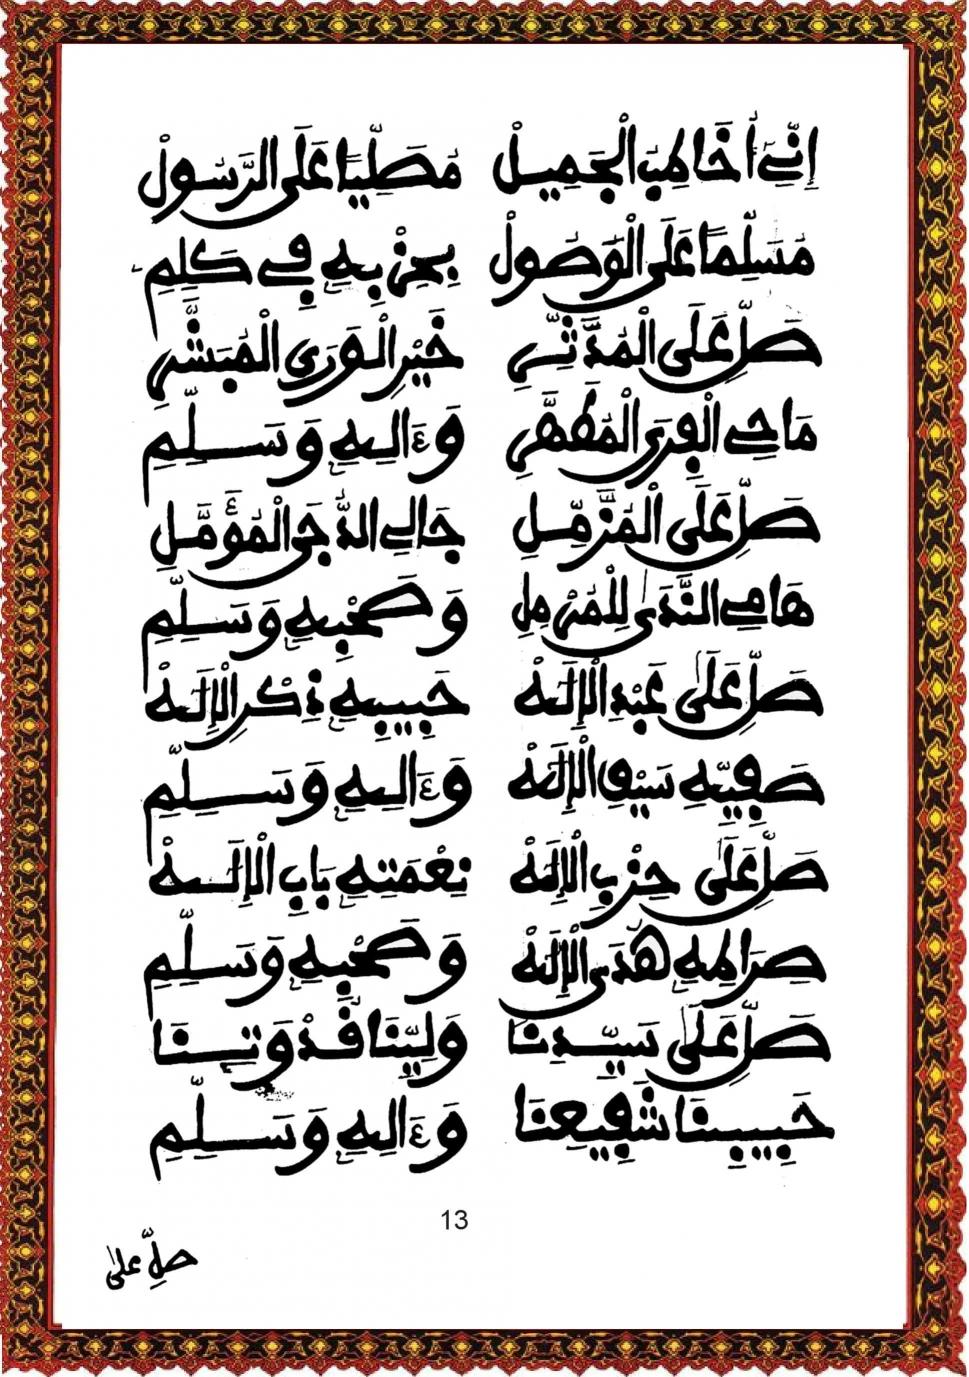 إِنِّي أُخَاطِبُ الْجَمِيلْ مُصَلِّيًا عَلَى الرَّسُولْ
مُسَلِّمًا عَلَى الْوَصُولْ بِحِزْبِهِ فِي كَلِمِ
صَلِّ عَلَى الْمُدَّثِّرِ خَيْرِ الْوَرَى الْمُبَشِّرِ
مَاحِي الْفِرَى الْمُطَهَّرِ وَءَالِهِ وَسَلِّمِ
صَلِّ عَلَى الْمُزَّمِّلِ جَالِي الدُّجَى الْمُؤَمَّلِ
هَامِي النَّدَى لِلْمُرْمِلِ وَصَحْبِهِ وَسَلِّمِ
صَلِّ عَلَى عَبْدِ الْإِلَهْ حَبِيبِهِ ذِكْرِ الْإِلَهْ
صَفِيِّهِ سَيْفِ الْإِلَهْ وَءَالِهِ وَسَلِّمِ
صَلِّ عَلَى حِزْبِ الْإِلَهْ نِعْمَتِهِ بَابِ الْإِلَهْ
صِرَاطِهِ هُدَى الْإِلَهْ وَصَحْبِهِ وَسَلِّمِ
صَلِّ عَلَى سَيِّدِنَا وَلِيِّنَا قُدْوَتِنَا
حَبِيبِنَا شَفِيعِنَا وَءَالِهِ وَسَلِّمِ
13
صلِّ على